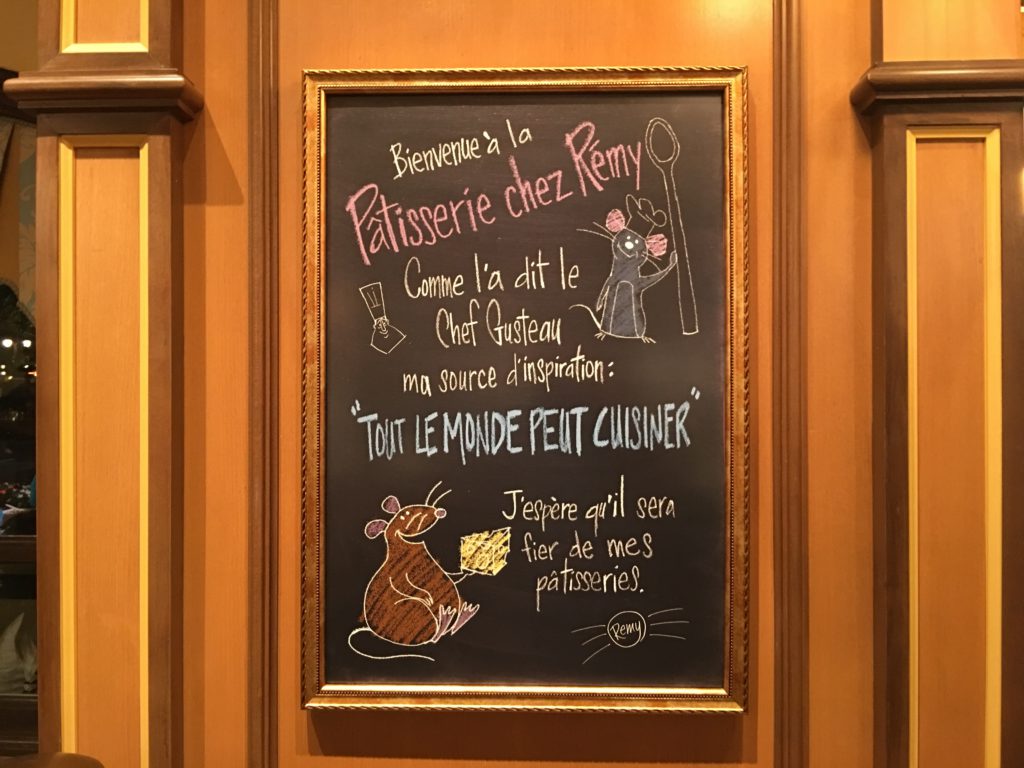 Bienvenue à la
Pâtisserie chez Rémy
Comme l'a dit le
Chef Gusteau
ma source d'inspiration:
"TOUT LE MONDE PEUT CUISINER"
J'espère qu'il sera
fier de mes
pâtisseries.
Remy